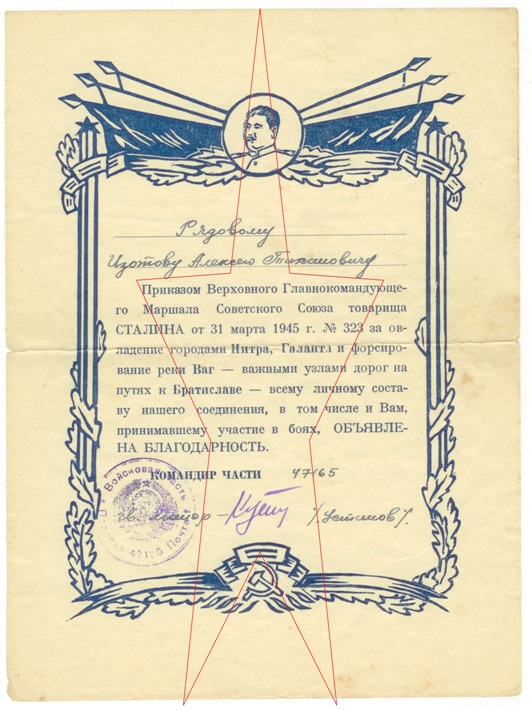 Рядовому
Изотову Алексею Тихановичу
Приказом Верховного Главнокомандующе-
го Маршала Советского Союза товарища
СТАЛИНА от 31 марта 1945 г. № 323 за ов-
ладение городами Нитра, Галанта и форсиро-
вание реки Ваг — важными узлами дорог на
путях к Братиславе — всему личному соста-
ву нашего соединения, в том числе и Вам,
принимавшему участие в боях, ОБЪЯВЛЕ-
НА БЛАГОДАРНОСТЬ.
КОМАНДИР ЧАСТИ 47165
гв. майор — /Устимов/.
Войсковая часть
Почта